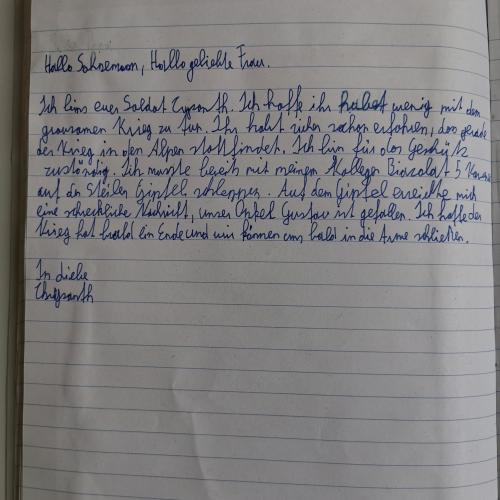 Hallo Sohnemann, Hallo geliebte Frau.
Ich bins euer Soldat Crysanth. Ich hoffe ihr habet wenig mit dem
grausamen Krieg zu tun. Ihr habt sicher schon erfahren, das gerade
der Krieg in den Alpen stattfindet. Ich bin für das Geschütz
zuständig. Ich musste bereits mit meinen Kollegen 5
auf den Steilen Gipfel schleppen. Auf dem Gipfel erreichte mich
eine schreckliche Nachricht, unser Onkel Gustav ist gefallen. Ich hoffe der
Krieg hat bald ein Ende und wir können uns bald in die Arme schließen.
In Liebe
Chrysanth